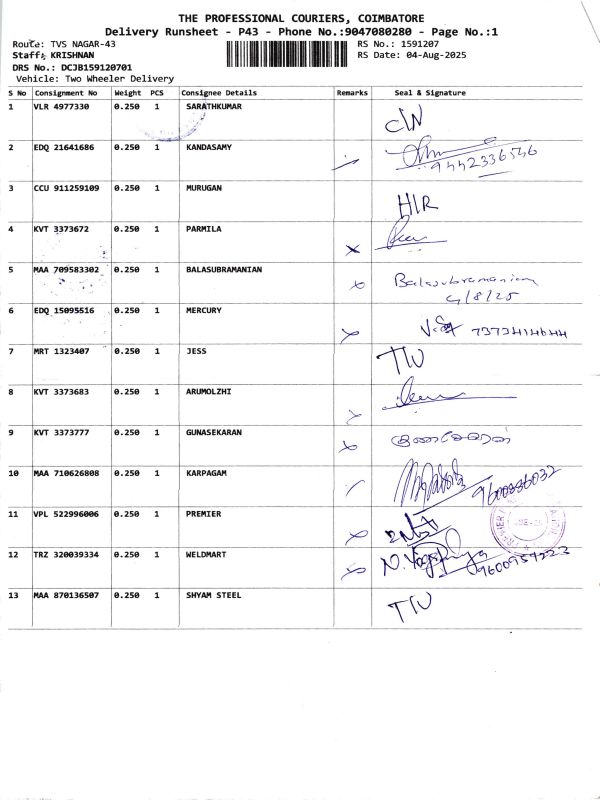 THE PROFESSIONAL COURIERS, COIMBATORE
Delivery Runsheet - P43 - Phone No.:9047080280 - Page No.:1
Route: TVS NAGAR-43 RS No.: 1591207
Staff: KRISHNAN RS Date: 04-Aug-2025
DRS No.: DCJB159120701
Vehicle: Two Wheeler Delivery
S No Consignment No Weight PCS Consignee Details Remarks Seal & Signature
1 VLR 4977330 0.250 1 SARATHKUMAR
2 EDQ 21641686 0.250 1 KANDASAMY
9442336546
3 CCU 911259109 0.250 1 MURUGAN
HIR
4 KVT 3373672 0.250 1 PARMILA
5 MAA 709583302 0.250 1 BALASUBRAMANIAN
Balasubramanian
4/8/25
6 EDQ 15095516 0.250 1 MERCURY
7373414644
7 MRT 1323407 0.250 1 JESS
8 KVT 3373683 0.250 1 ARUMOLZHI
9 KVT 3373777 0.250 1 GUNASEKARAN
குணசேகரன்
10 MAA 710626808 0.250 1 KARPAGAM
9600886032
11 VPL 522996006 0.250 1 PREMIER
12 TRZ 320039334 0.250 1 WELDMART
9600957223
13 MAA 870136507 0.250 1 SHYAM STEEL